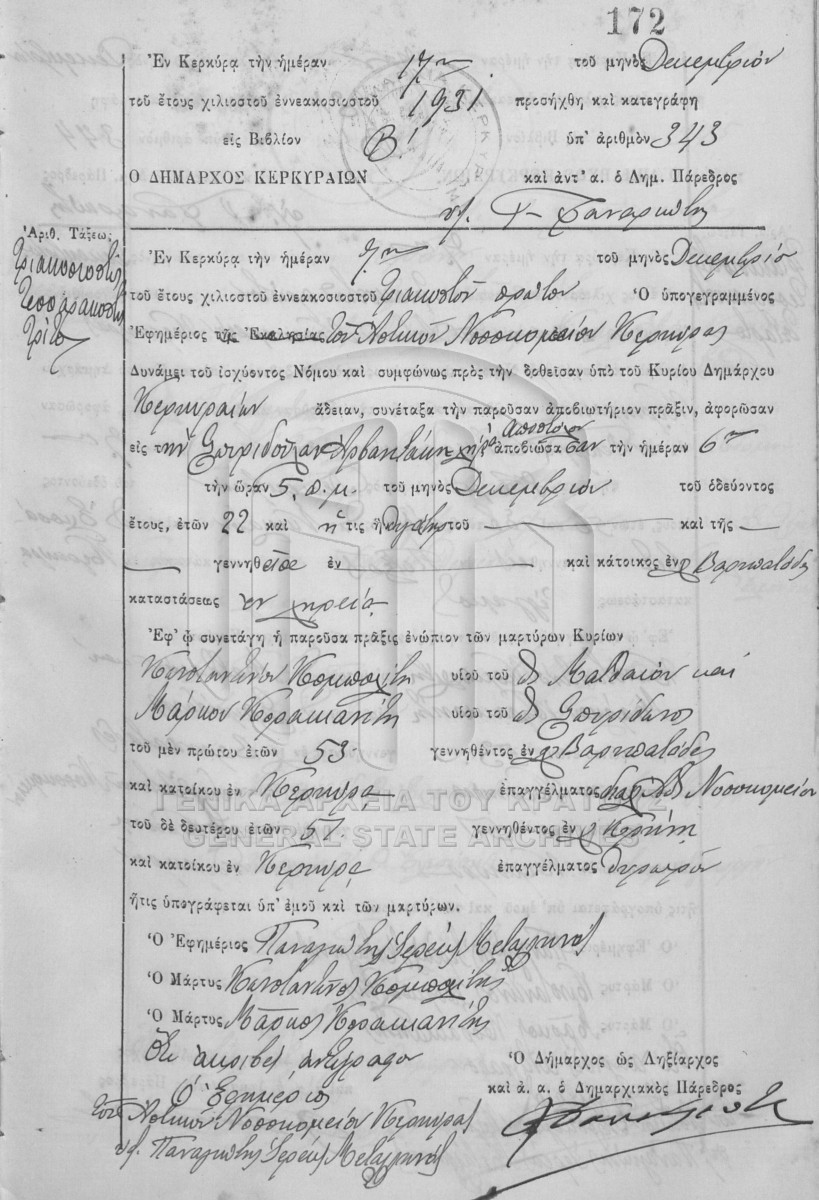 172
Ἐν Κερκύρᾳ τὴν ἡμέραν 17ην τοῦ μηνὸς Δεκεμβρίου
τοῦ ἔτους χιλιοστοῦ ἐννεακοσιοστοῦ 1931 προσήχθη καὶ κατεγράφη
εἰς Βιβλίον Β! ὑπ' ἀριθμὸν 343
Ο ΔΗΜΑΡΧΟΣ ΚΕΡΚΥΡΑΙΩΝ καὶ ἀντ' α. ὁ Δημ. Πάρεδρος
Ἀριθ. Τάξεως
Τριακοσιοστὴ
Τεσσαρακοστὴ
Τρίτη
Ἐν Κερκύρᾳ τὴν ἡμέραν 7ην τοῦ μηνὸς Δεκεμβρίου
τοῦ ἔτους χιλιοστοῦ ἐννεακοσιοστοῦ τριακοστοῦ πρώτου Ὁ ὑπογεγραμμένος
Ἐφημέριος τῆς Ἐκκλησίας τοῦ Ἀστικοῦ Νοσοκομείου Κερκύρας
Δυνάμει τοῦ ἰσχύοντος Νόμου καὶ συμφώνως πρὸς τὴν δοθεῖσαν ὑπὸ τοῦ Κυρίου Δημάρχου
Κερκυραίων ἄδειαν, συνέταξα τὴν παροῦσαν ἀποβιωτήριον πρᾶξιν, ἀφορῶσαν
εἰς τὴν Σπυριδούλαν Ἀρβανιτάκη χήρα Ἀποστόλου ἀποβιώσασαν τὴν ἡμέραν 6ην
τὴν ὥραν 5. π.μ. τοῦ μηνὸς Δεκεμβρίου τοῦ ὁδεύοντος
ἔτους, ἐτῶν 22 καὶ ἥτις ἦ θυγάτηρ τοῦ — καὶ τῆς —
— γεννηθεῖσα ἐν — καὶ κάτοικος ἐν Βαρυπατάδες
καταστάσεως ἐν χηρείᾳ
Ἐφ' ᾧ συνετάγη ἡ παροῦσα πρᾶξις ἐνώπιον τῶν μαρτύρων Κυρίων
Κωνσταντίνου Κομπολίτη υἱοῦ τοῦ Ματθαίου καὶ
Μάρκου Κορακιανίτη υἱοῦ τοῦ Σπυρίδωνος
τοῦ μὲν πρώτου ἐτῶν 53 γεννηθέντος ἐν Βαρυπατάδες
καὶ κατοίκου ἐν Κερκύρᾳ ἐπαγγέλματος Νοσοκομείου
τοῦ δὲ δευτέρου ἐτῶν 57 γεννηθέντος ἐν
καὶ κατοίκου ἐν Κερκύρᾳ ἐπαγγέλματος θυρωρὸν
ἥτις ὑπογράφεται ὑπ' ἐμοῦ καὶ τῶν μαρτύρων.
Ὁ Ἐφημέριος Παναγιώτης Ἱερεὺς Μεταλληνὸς
Ὁ Μάρτυς Κωνσταντῖνος Κομπολίτης
Ὁ Μάρτυς Μάρκος Κορακιανίτης
Ὅτι ἀκριβὲς ἀντίγραφον
Ὁ Ἐφημέριος
τοῦ Ἀστικοῦ Νοσοκομείου Κερκύρας
υ. Παναγιώτης Ἱερεὺς Μεταλληνὸς
Ὁ Δήμαρχος ὡς Ληξίαρχος
καὶ ἀ. α. ὁ Δημαρχιακὸς Πάρεδρος
ΓΕΝΙΚΑ ΑΡΧΕΙΑ ΤΟΥ ΚΡΑΤΟΥΣ
GENERAL STATE ARCHIVES